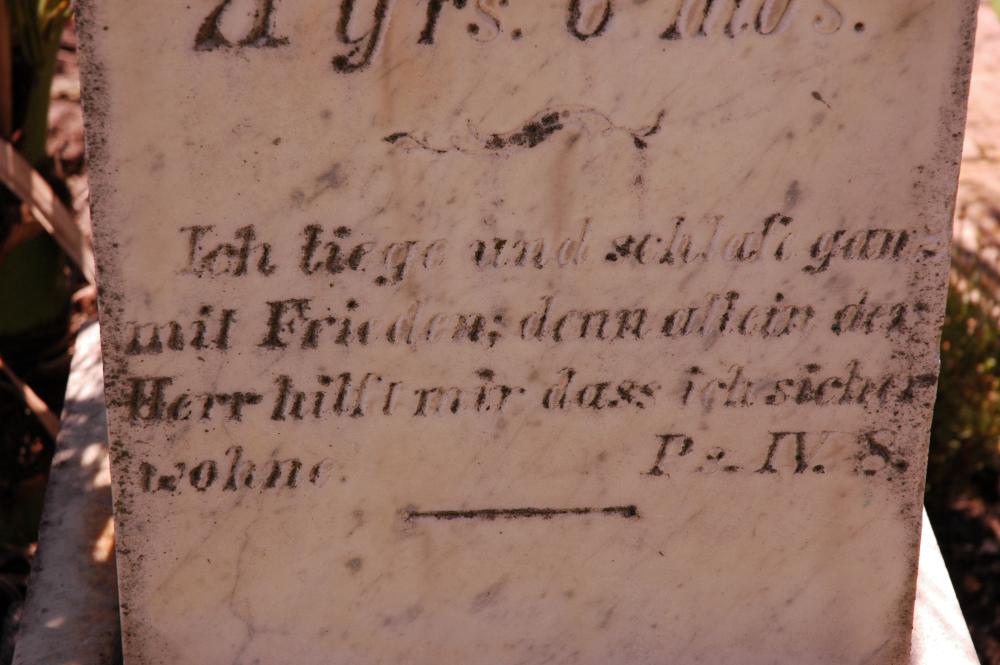 yrs. 6 mos.
Ich liege und schlafe ganz
mit Frieden; denn allein der
Herr hilft mir dass ich sicher
wohne. Ps. IV. 8.